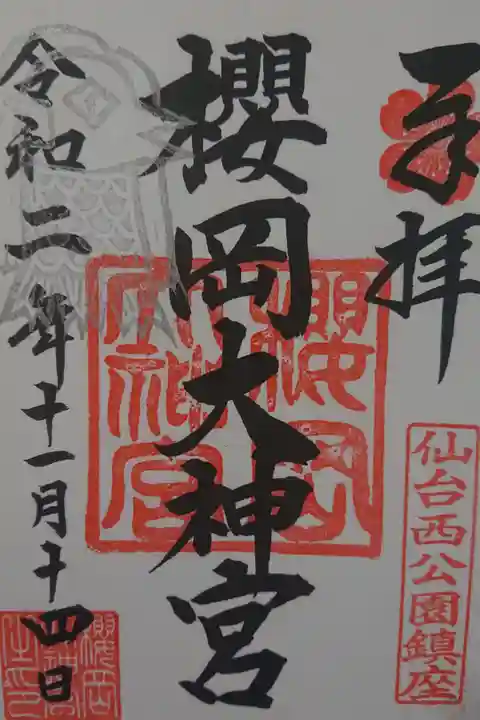 奉拝
仙台西公園鎮座
櫻岡大神宮
令和二年十一月十四日